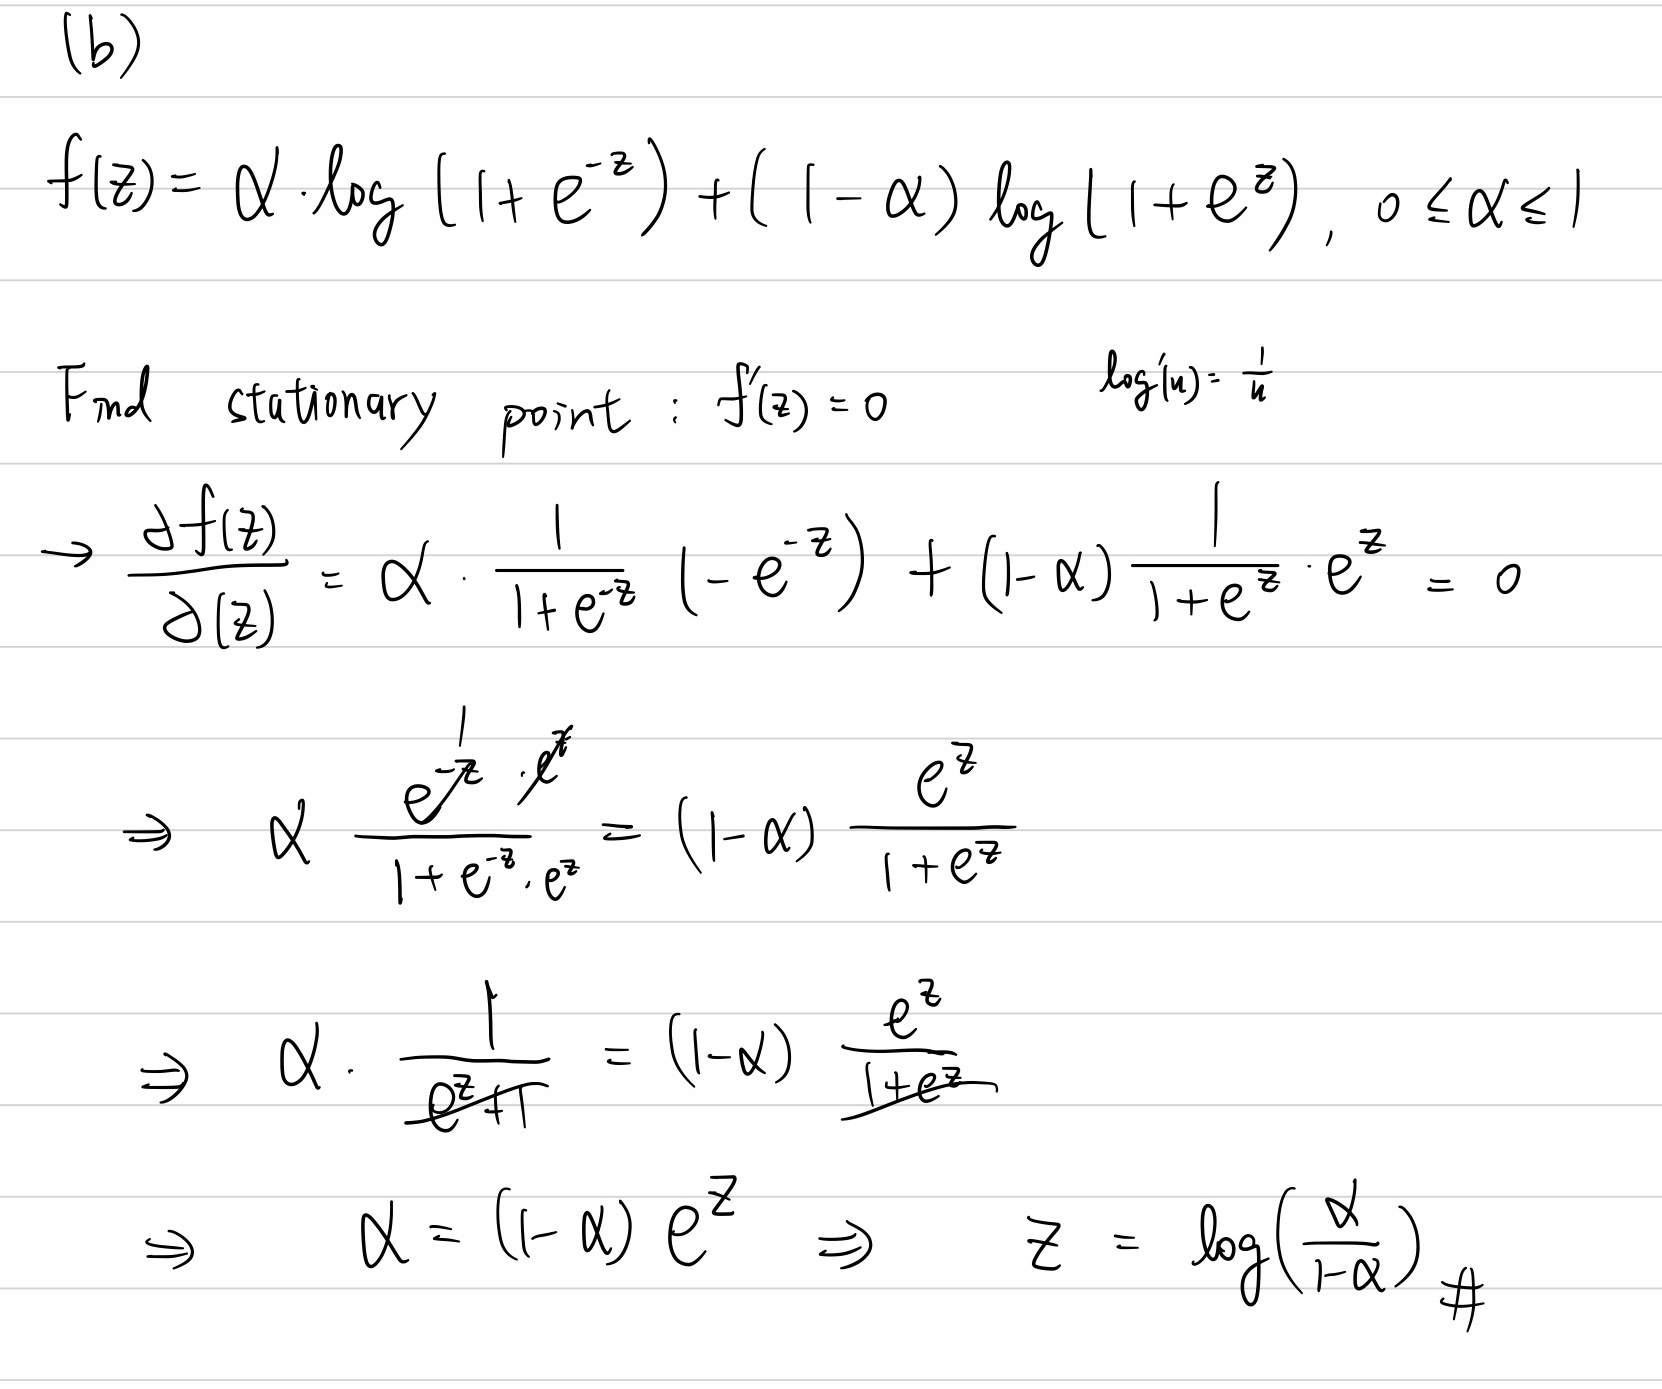 (b)
f(z) = α · log (1 + e^{-z}) + (1 - α) log (1 + e^z), 0 ≤ α ≤ 1
Find stationary point : f'(z) = 0 log'(u) = \frac{1}{u}
→ \frac{∂f(z)}{∂(z)} = α · \frac{1}{1 + e^{-z}} (-e^{-z}) + (1 - α) \frac{1}{1 + e^z} · e^z = 0
⇒ α \frac{e^{-z} · e^z}{1 + e^{-z} · e^z} 1 = (1 - α) \frac{e^z}{1 + e^z}
⇒ α · \frac{1}{e^z + 1} = (1 - α) \frac{e^z}{1 + e^z}
⇒ α = (1 - α) e^z ⇒ z = log(\frac{α}{1 - α}) #